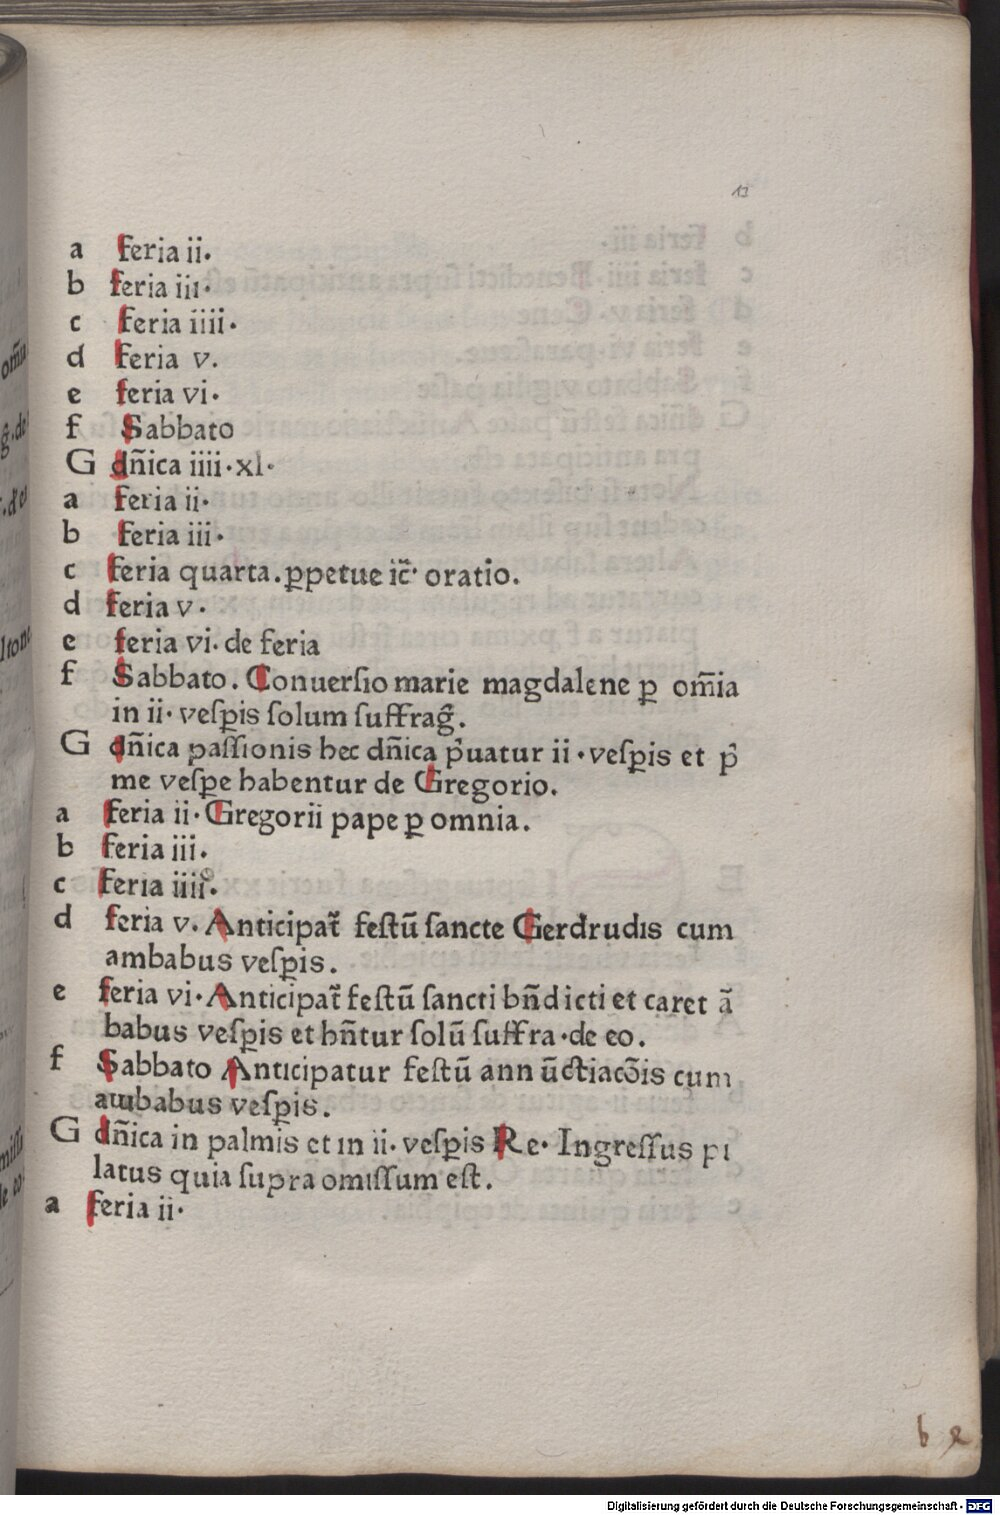 13
a feria ii.
b feria iii.
c feria iiii.
d feria v.
e feria vi.
f Sabbato
G dn̄ica iiii.xl.
a feria ii.
b feria iii.
c feria quarta. ꝑpetue ic̄. oratio.
d feria v.
e feria vi. de feria
f Sabbato. Conuerſio marie magdalene ꝑ om̄ia
in ii. veſꝑis ſolum ſuffrag̃.
G dn̄ica paſſionis hec dn̄ica p̃uatur ii. veſꝑis et p̃
me veſꝑe habentur de Gregorio.
a feria ii. Gregorii pape ꝑ omnia.
b feria iii.
c feria iiii.
d feria v. Anticipat᷑ feſtū ſancte Gerdrudis cum
ambabus veſꝑis.
e feria vi. Anticipat᷑ feſtū ſancti bn̄dicti et caret ā
babus veſꝑis et hn̄tur ſolū ſuffra.de eo.
f Sabbato Anticipatur feſtū ann ūctiacōis cum
ambabus veſꝑis.
G dn̄ica in palmis et in ii. veſꝑis Re. Ingreſſus pi
latus quia ſupra omiſſum eſt.
a feria ii.
b e
Digitalisierung gefördert durch die Deutsche Forschungsgemeinschaft - DFG